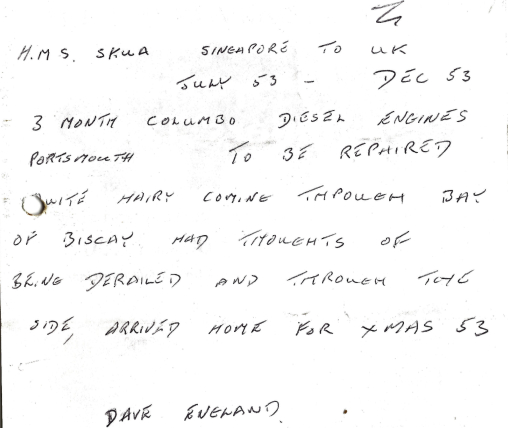 H.M S. SKUA SINGAPORE TO UK
JULY 53 - DEC 53
3 MONTH COLUMBO DIESEL ENGINES
PORTSMOUTH TO BE REPAIRED
QUITE HAIRY COMING THROUGH BAY
OF BISCAY HAD THOUGHTS OF
BEING DERAILED AND THROUGH THE
SIDE, ARRIVED HOME FOR XMAS 53
DAVE ENGLAND.